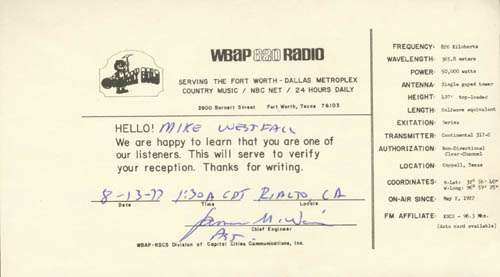 WBAP 820 RADIO
SERVING THE FORT WORTH - DALLAS METROPLEX
COUNTRY MUSIC / NBC NET / 24 HOURS DAILY
3900 Barnett Street Fort Worth, Texas 76103
HELLO! MIKE WESTFALL
We are happy to learn that you are one of
our listeners. This will serve to verify
your reception. Thanks for writing.
8-13-77 1:30A CDT RIALTO, CA
Date Time Locale
Chief Engineer
WBAP-KSCS Division of Capital Cities Communications, Inc.
FREQUENCY: 820 Kilohertz
WAVELENGTH: 365.8 meters
POWER: 50,000 watts
ANTENNA: Single guyed tower
HEIGHT: top-loaded
LENGTH: Halfwave equivalent
EXITATION: Series
TRANSMITTER: Continental 317-C
AUTHORIZATION: Non-Directional
Clear-Channel
LOCATION: Coppell, Texas
COORDINATES: N-Lat:
W-Long:
ON-AIR SINCE: May 2, 1922
FM AFFILIATE: KSCS - 96.3 Mhz.
(data card available)